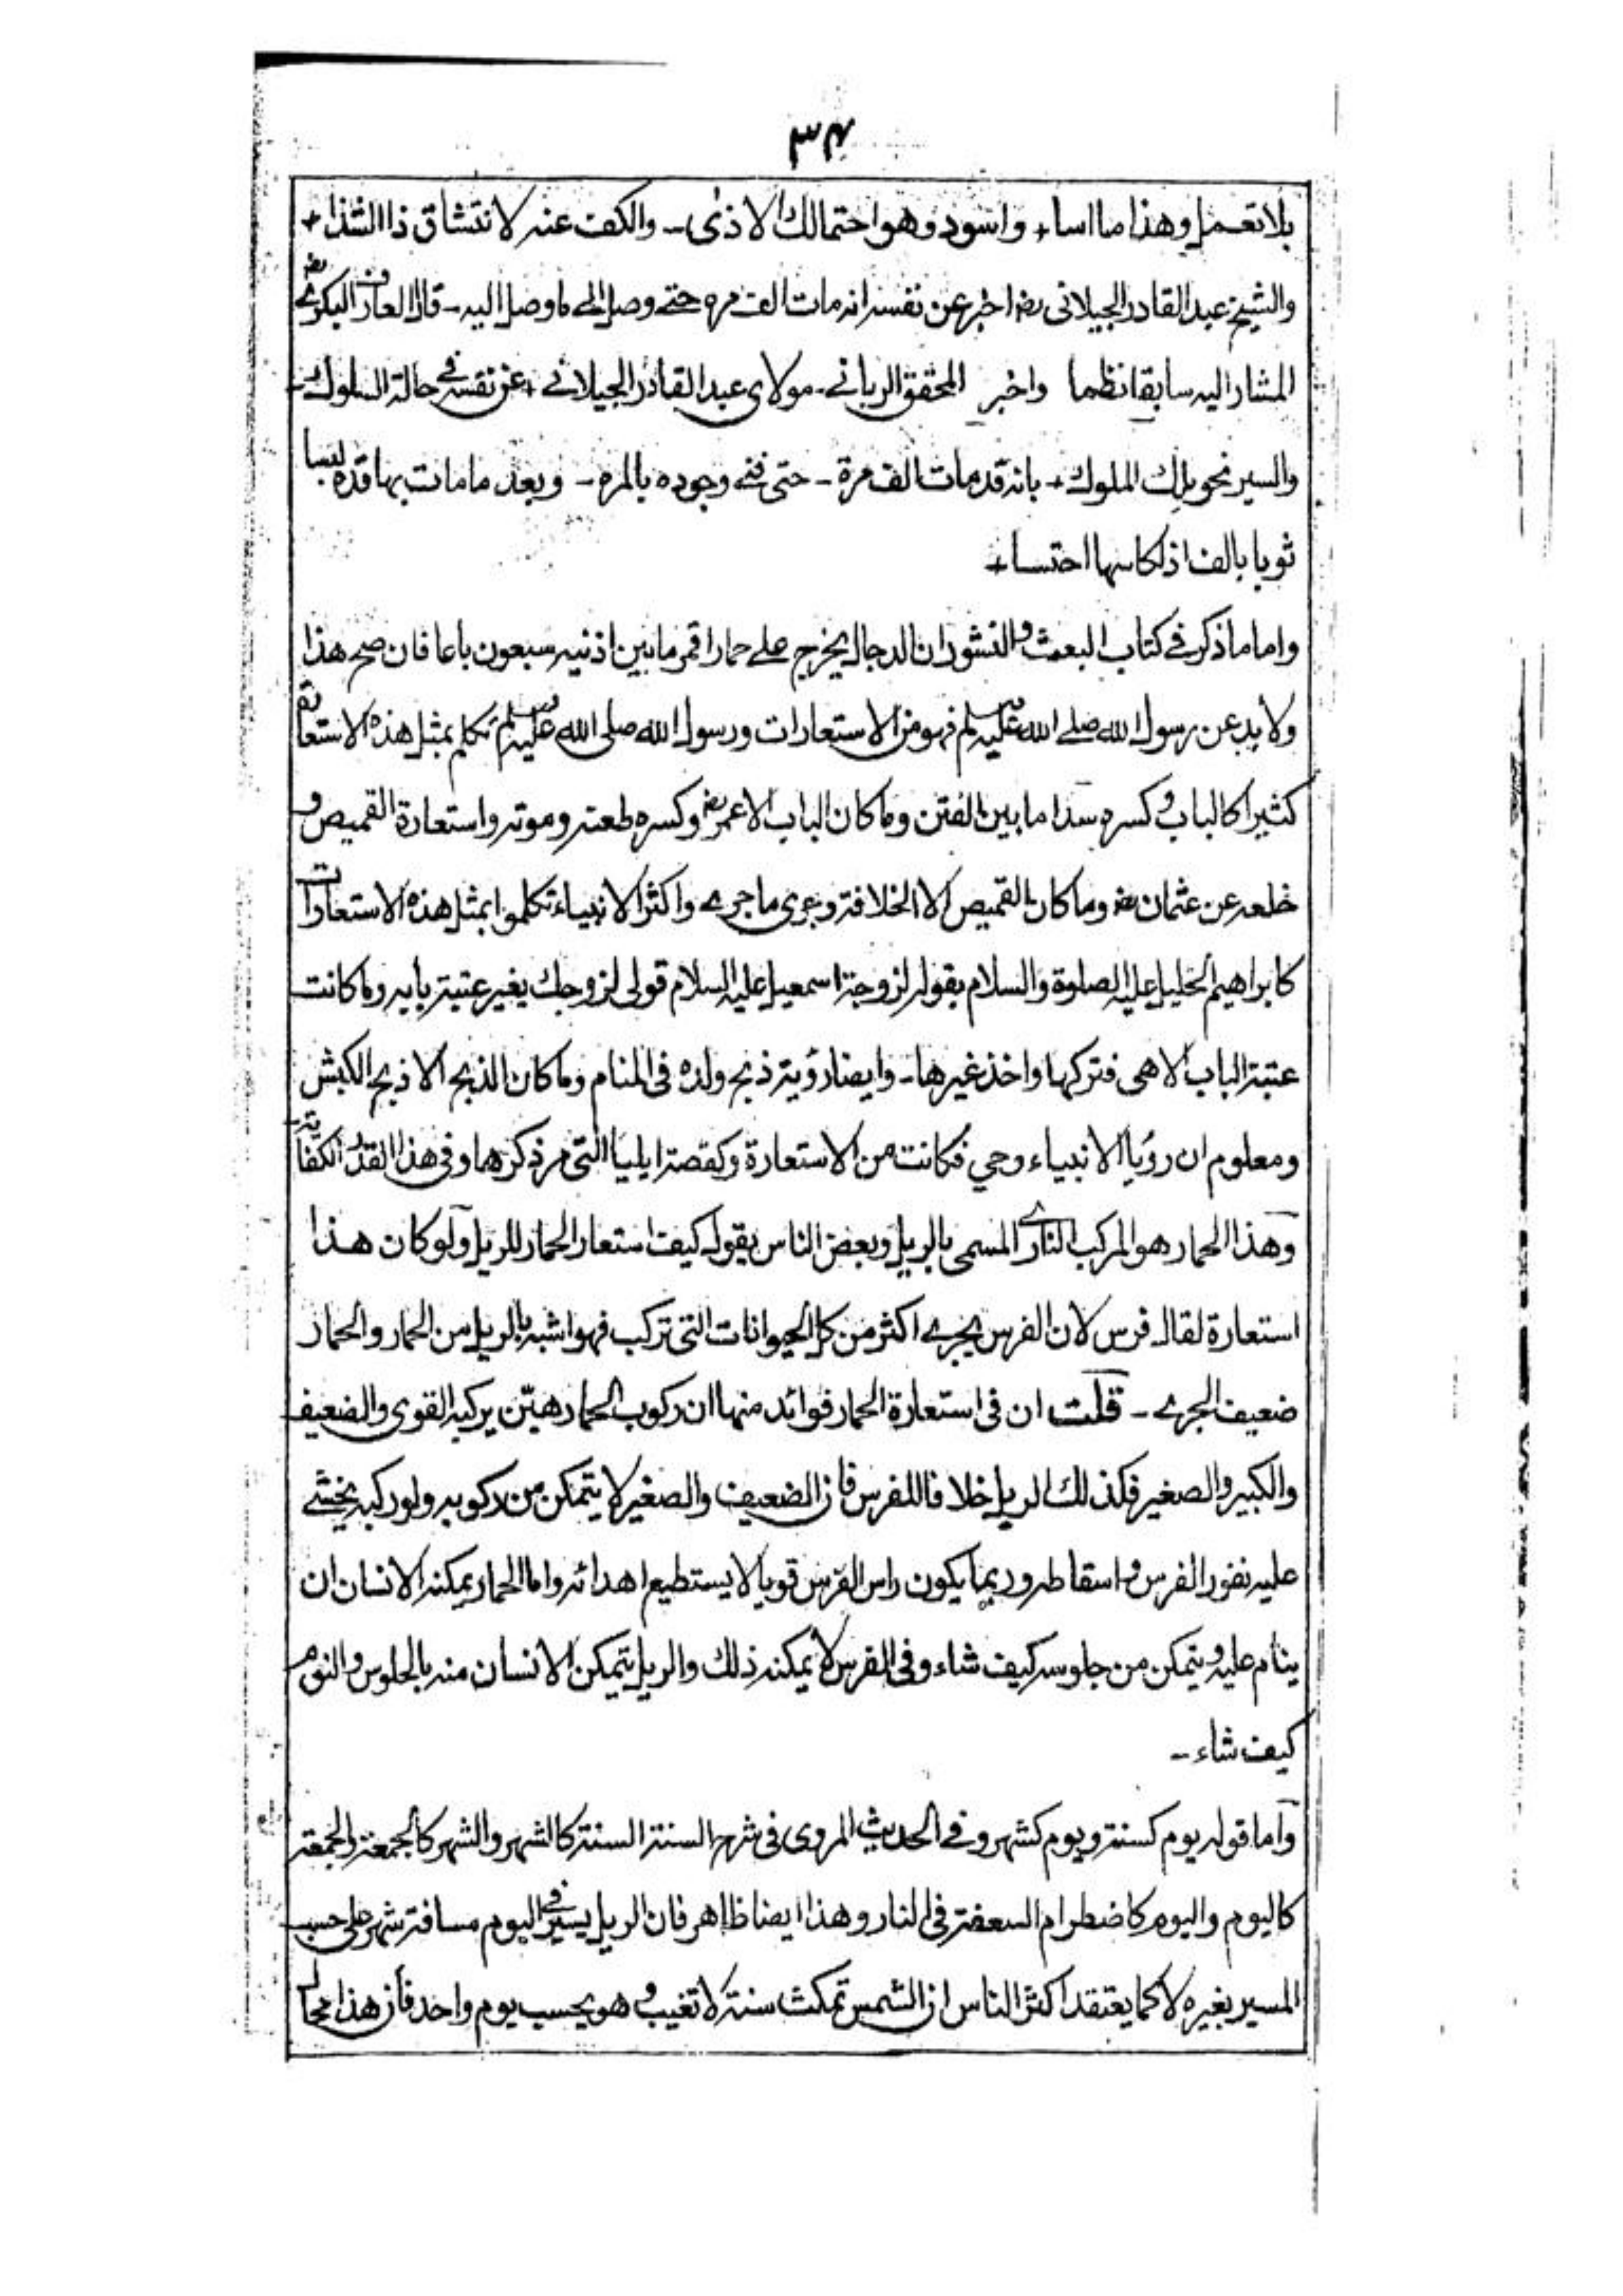 ٣٤
بلا تعمل وهذا ما اساء + واسود وهو احتمالك الاذى ـ والكف عنه لانتشاق ذا الشذا +
والشيخ عبد القادر الجيلانى رض اخبر عن نفسه انه مات الف مره حتے وصل الى ما وصل اليه ـ قال العارف البكرى رض
المشار اليه سابقا نظما واخبر المحقق الربانے ـ مولاى عبد القادر الجيلانے + عن نفسه فے حالة السلوك ـ
والسير نحو ملك الملوك + بانه قد مات الف مرة ـ حتى فنے وجوده بالمره ـ وبعد ما مات بها قد لبسا
ثوبا بالف اذ لكاسها احتسا +
واما ما ذكر فے كتاب البعث والنشور ان الدجال يخرج علے حمار اقمر ما بين اذنيه سبعون باعا فان صح هذا
ولا بد عن رسول الله صلے الله عليه وسلم فهو من الاستعارات ورسول الله صلى الله عليه وسلم تكلم بمثل هذه الاستعارات
كثيرا كالباب وكسره سدا ما بين الفتن وما كان الباب الا عمر رض وكسره طعنه وموته واستعارة القميص و
خلعه عن عثمان رض وما كان القميص الا الخلافة وجرى ما جرے واكثر الانبياء تكلموا بمثل هذه الاستعارات
كابراهيم الخليل عليه الصلوة والسلام بقوله لزوجة اسمعيل عليه السلام قولى لزوجك يغير عتبة بابه وما كانت
عتبة الباب الا هى فتركها واخذ غيرها ـ وايضا رؤية ذبح ولده فى المنام وما كان الذبح الا ذبح الكبش
ومعلوم ان رؤيا الانبياء وحي فكانت من الاستعارة وكقصة ايليا التى مر ذكرها وفى هذا القدر الكفاية
وهذا الحمار هو المركب النارے المسمى بالريل وبعض الناس يقول كيف استعار الحمار للريل ولو كان هذا
استعارة لقال فرس لان الفرس يجرے اكثر من كل الحيوانات التى تركب فهو اشبه بالريل من الحمار والحمار
ضعيف الجرے ـ قلت ان فى استعارة الحمار فوائد منها ان ركوب الحمار هيّن يركبه القوى والضعيف
والكبير والصغير فكذلك الريل خلافا للفرس فان الضعيف والصغير لا يتمكن من ركوبه ولو ركبه يخشے
عليه نفور الفرس واسقاطه وربما يكون راس الفرس قويا لا يستطيع اهدائه واما الحمار يمكنه الانسان ان
ينام عليه ويتمكن من جلوسه كيف شاء وفى الفرس لا يمكنه ذلك والريل يتمكن الانسان منه بالجلوس والنوم
كيف شاء ـ
واما قوله يوم كسنة ويوم كشهر وفے الحديث المروى فى شرح السنة السنة كالشهر والشهر كالجمعة والجمعة
كاليوم واليوم كاضطرام السعفة فى النار وهذا ايضا ظاهر فان الريل يسير فے اليوم مسافة شهر على حسب
المسير بغيره لا كما يعتقد اكثر الناس ان الشمس تمكث سنة لا تغيب وهو يحسب يوم واحد فان هذا محال